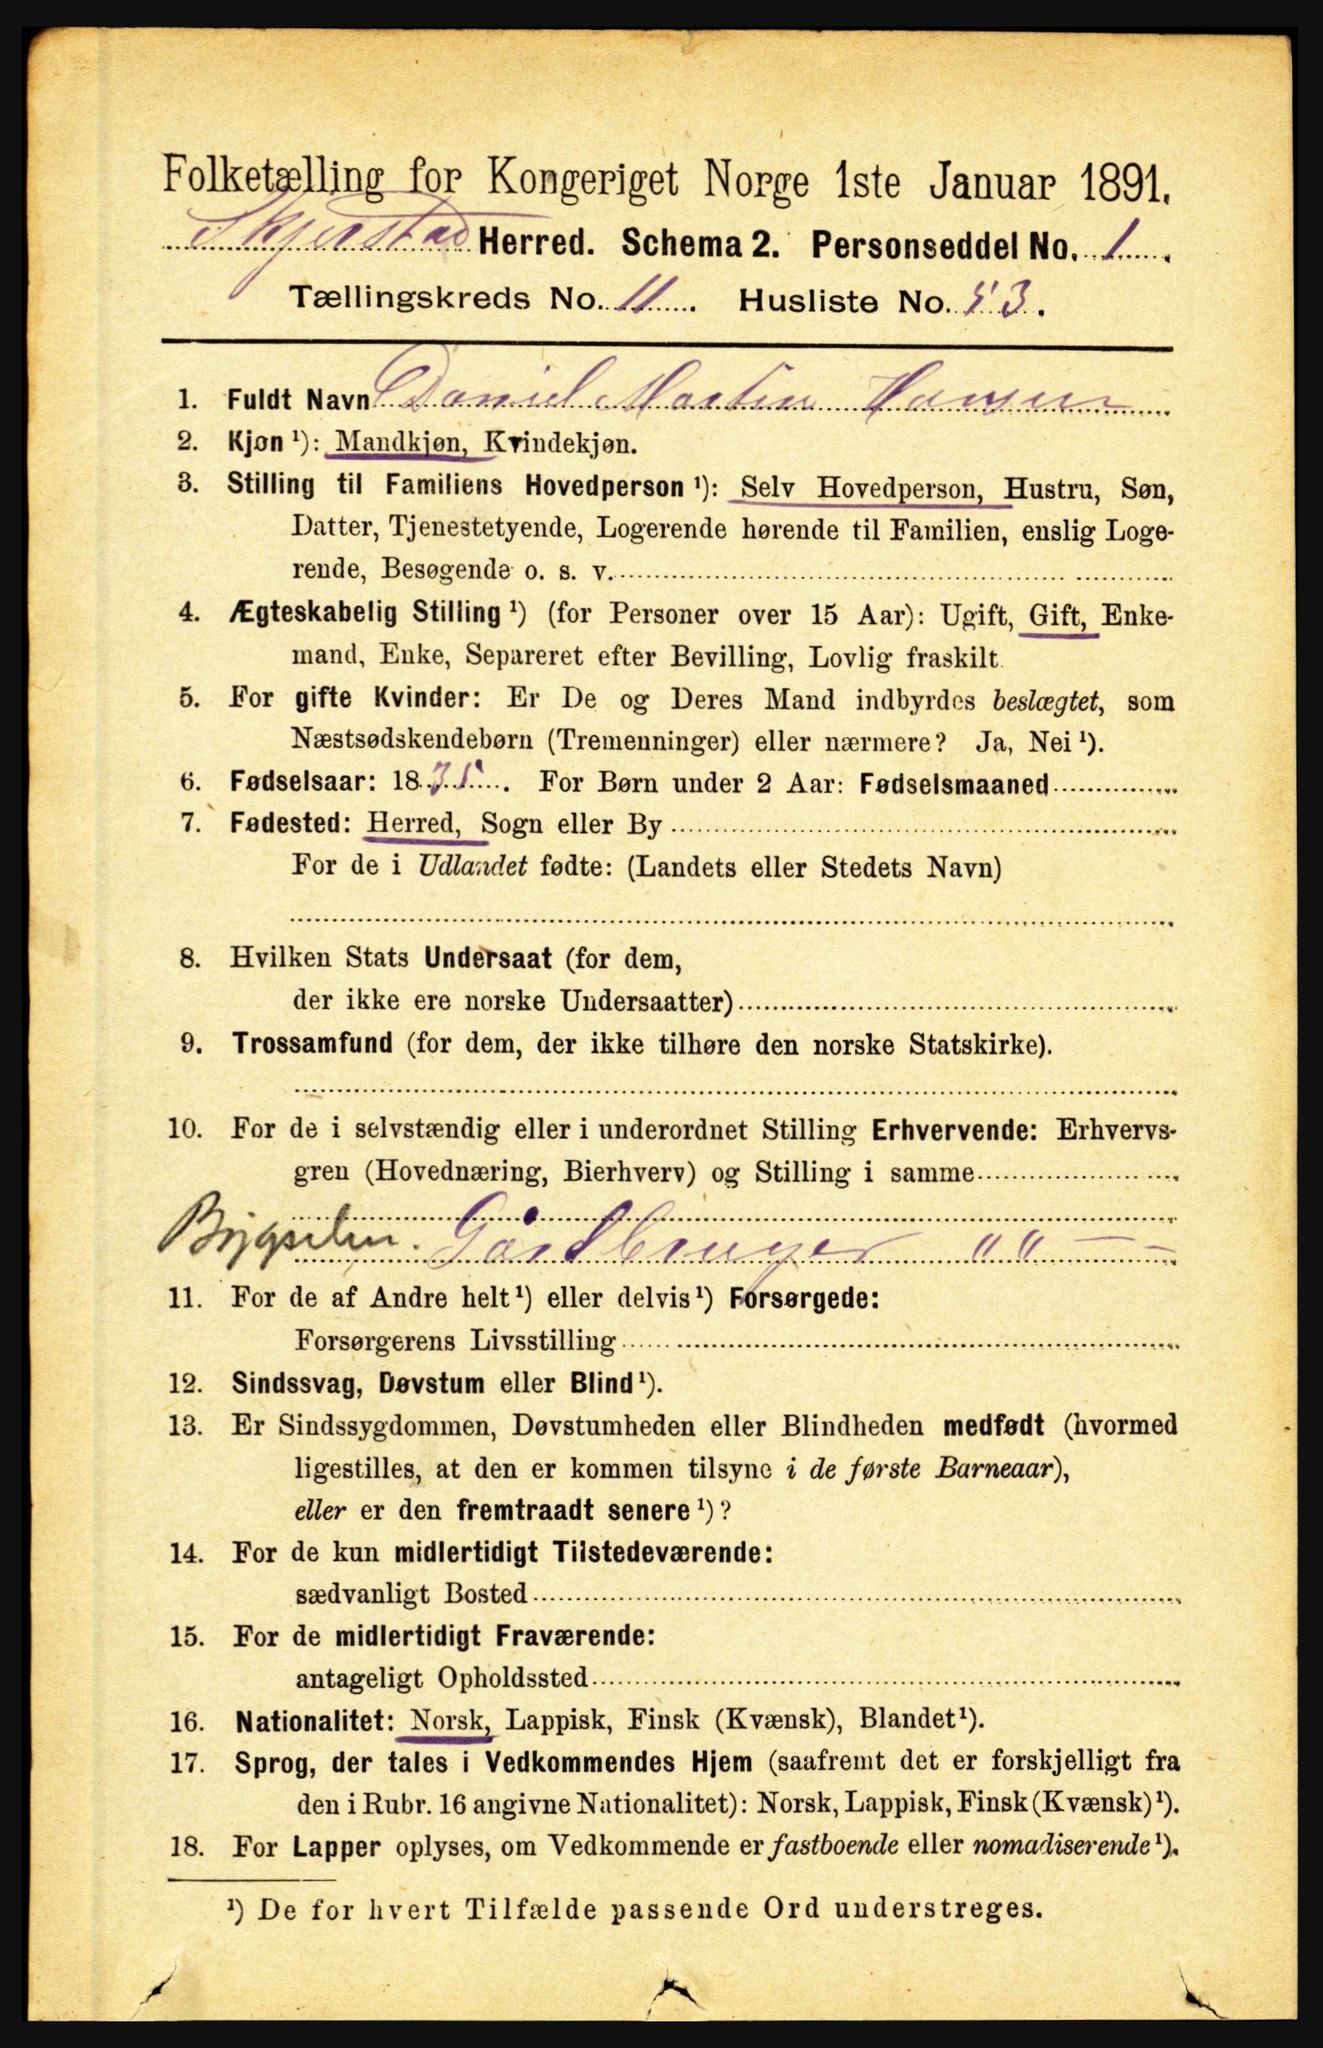 Folketælling for Kongeriget Norge 1ste Januar 1891.
Skjerstad Herred. Schema 2. Personseddel No. 1.
Tællingskreds No. 11. Husliste No. 53.
1. Fuldt Navn Daniel Martin Hansen
2. Kjøn ¹): Mandkjøn, Kvindekjøn.
3. Stilling til Familiens Hovedperson ¹): Selv Hovedperson, Hustru, Søn,
Datter, Tjenestetyende, Logerende hørende til Familien, enslig Loge-
rende, Besøgende o. s. v.
4. Ægteskabelig Stilling ¹) (for Personer over 15 Aar): Ugift, Gift, Enke-
mand, Enke, Separeret efter Bevilling, Lovlig fraskilt.
5. For gifte Kvinder: Er De og Deres Mand indbyrdes beslægtet, som
Næstsødskendebørn (Tremenninger) eller nærmere? Ja, Nei ¹).
6. Fødselsaar: 1835. For Børn under 2 Aar: Fødselsmaaned
7. Fødested: Herred, Sogn eller By
For de i Udlandet fødte: (Landets eller Stedets Navn)
8. Hvilken Stats Undersaat (for dem,
der ikke ere norske Undersaatter)
9. Trossamfund (for dem, der ikke tilhøre den norske Statskirke).
10. For de i selvstændig eller i underordnet Stilling Erhvervende: Erhvervs-
gren (Hovednæring, Bierhverv) og Stilling i samme
Bygselm. Gårdbruger " " — —
11. For de af Andre helt ¹) eller delvis ¹) Forsørgede:
Forsørgerens Livsstilling
12. Sindssvag, Døvstum eller Blind ¹).
13. Er Sindssygdommen, Døvstumheden eller Blindheden medfødt (hvormed
ligestilles, at den er kommen tilsyne i de første Barneaar),
eller er den fremtraadt senere ¹)?
14. For de kun midlertidigt Tilstedeværende:
sædvanligt Bosted
15. For de midlertidigt Fraværende:
antageligt Opholdssted
16. Nationalitet: Norsk, Lappisk, Finsk (Kvænsk), Blandet ¹).
17. Sprog, der tales i Vedkommendes Hjem (saafremt det er forskjelligt fra
den i Rubr. 16 angivne Nationalitet): Norsk, Lappisk, Finsk (Kvænsk) ¹).
18. For Lapper oplyses, om Vedkommende er fastboende eller nomadiserende ¹).
¹) De for hvert Tilfælde passende Ord understreges.